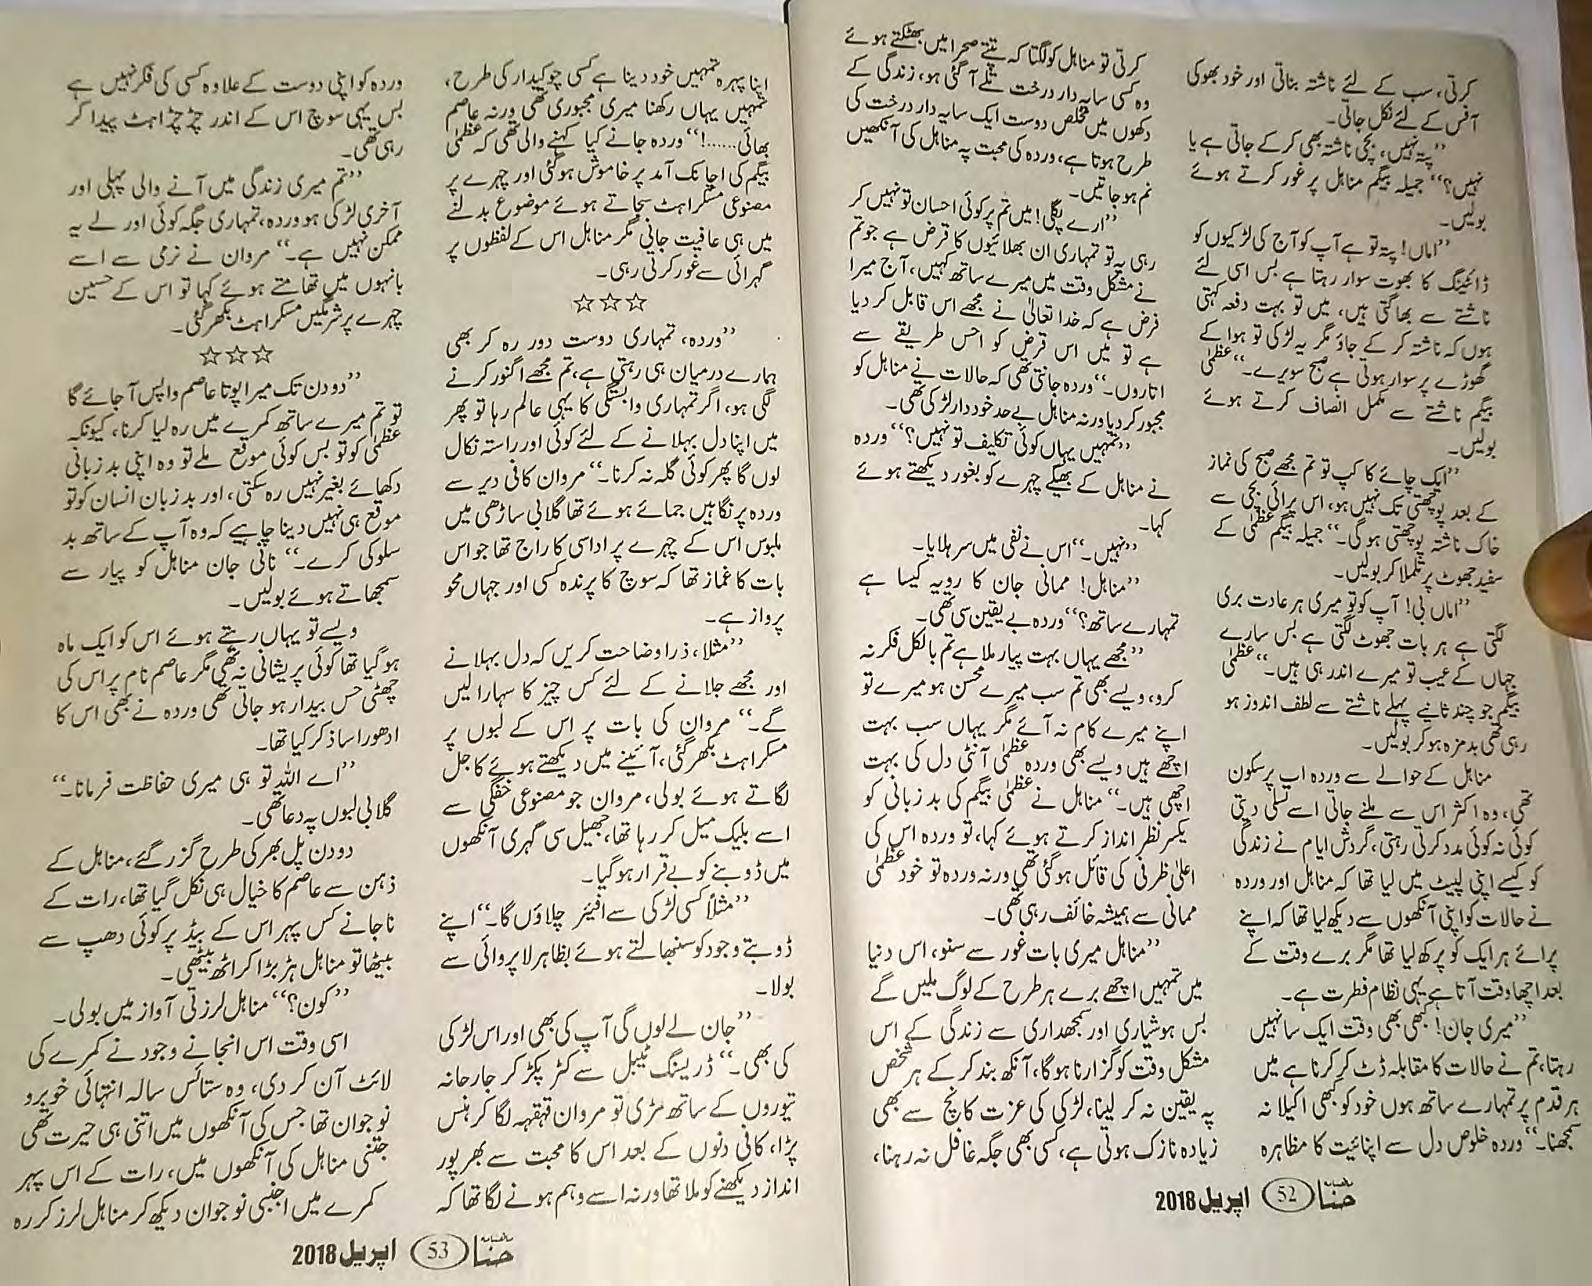 کرتی، سب کے لئے ناشتہ بناتی اور خود بھوکی
آفس کے لئے نکل جاتی۔
”پتہ نہیں، بچی ناشتہ بھی کر کے جاتی ہے یا
نہیں؟“ جمیلہ بیگم مناہل پر غور کرتے ہوئے
بولیں۔
”اماں! پتہ تو ہے آپ کو آج کی لڑکیوں کو
ڈائٹنگ کا بھوت سوار رہتا ہے بس اسی لئے
ناشتے سے بھاگتی ہیں، میں تو بہت دفعہ کہتی
ہوں کہ ناشتہ کر کے جاؤ مگر یہ لڑکی تو ہوا کے
گھوڑے پر سوار ہوتی ہے صبح سویرے۔“ عظمیٰ
بیگم ناشتے سے مکمل انصاف کرتے ہوئے
بولیں۔
”ایک چائے کا کپ تو تم مجھے صبح کی نماز
کے بعد پوچھتی تک نہیں ہو، اس پرائی بچی سے
خاک ناشتہ پوچھتی ہو گی۔“ جمیلہ بیگم عظمیٰ کے
سفید جھوٹ پر تلملا کر بولیں۔
”اماں بی! آپ کو تو میری ہر عادت بری
لگتی ہے ہر بات جھوٹ لگتی ہے بس سارے
جہاں کے عیب تو میرے اندر ہی ہیں۔“ عظمیٰ
بیگم جو چند ثانیے پہلے ناشتے سے لطف اندوز ہو
رہی تھی بدمزہ ہو کر بولیں۔
مناہل کے حوالے سے وردہ اب پرسکون
تھی، وہ اکثر اس سے ملنے جاتی اسے تسلی دیتی
کوئی نہ کوئی مدد کرتی رہتی، گردش ایام نے زندگی
کو کیسے اپنی لپیٹ میں لیا تھا کہ مناہل اور وردہ
نے حالات کو اپنی آنکھوں سے دیکھ لیا تھا کہ اپنے
پرائے ہر ایک کو پرکھ لیا تھا مگر برے وقت کے
بعد اچھا وقت آتا ہے یہی نظام فطرت ہے۔
”میری جان! کبھی بھی وقت ایک سا نہیں
رہتا، تم نے حالات کا مقابلہ ڈٹ کر کرنا ہے میں
ہر قدم پر تمہارے ساتھ ہوں خود کو کبھی اکیلا نہ
سمجھنا۔“ وردہ خلوص دل سے اپنائیت کا مظاہرہ
کرتی تو مناہل کو لگتا کہ تپتے صحرا میں بھٹکتے ہوئے
وہ کسی سایہ دار درخت تلے آ گئی ہو، زندگی کے
دکھوں میں مخلص دوست ایک سایہ دار درخت کی
طرح ہوتا ہے، وردہ کی محبت پہ مناہل کی آنکھیں
نم ہو جاتیں۔
”ارے پگلی! میں تم پر کوئی احسان تو نہیں کر
رہی یہ تو تمہاری ان بھلائیوں کا قرض ہے جو تم
نے مشکل وقت میں میرے ساتھ کہیں، آج میرا
فرض ہے کہ خدا تعالیٰ نے مجھے اس قابل کر دیا
ہے تو میں اس قرض کو احسن طریقے سے
اتاروں۔“ وردہ جانتی تھی کہ حالات نے مناہل کو
مجبور کر دیا ورنہ مناہل بے حد خود دار لڑکی تھی۔
”تمہیں یہاں کوئی تکلیف تو نہیں؟“ وردہ
نے مناہل کے بھیگے چہرے کو بغور دیکھتے ہوئے
کہا۔
”نہیں۔“ اس نے نفی میں سر ہلایا۔
”مناہل! ممانی جان کا رویہ کیسا ہے
تمہارے ساتھ؟“ وردہ بے یقین سی تھی۔
”مجھے یہاں بہت پیار ملا ہے تم بالکل فکر نہ
کرو، ویسے بھی تم سب میرے محسن ہو میرے تو
اپنے میرے کام نہ آئے مگر یہاں سب بہت
اچھے ہیں ویسے بھی وردہ عظمیٰ آنٹی دل کی بہت
اچھی ہیں۔“ مناہل نے عظمیٰ بیگم کی بدزبانی کو
یکسر نظر انداز کرتے ہوئے کہا، تو وردہ اس کی
اعلیٰ ظرفی کی قائل ہو گئی تھی ورنہ وردہ تو خود عظمیٰ
ممانی سے ہمیشہ خائف رہی تھی۔
”مناہل میری بات غور سے سنو، اس دنیا
میں تمہیں اچھے برے ہر طرح کے لوگ ملیں گے
بس ہوشیاری اور سمجھداری سے زندگی کے اس
مشکل وقت کو گزارنا ہو گا، آنکھ بند کر کے ہر شخص
پہ یقین نہ کر لینا، لڑکی کی عزت کانچ سے بھی
زیادہ نازک ہوتی ہے، کسی بھی جگہ غافل نہ رہنا،
ماہنامہ حنا 52 اپریل 2018
اپنا پہرہ تمہیں خود دینا ہے کسی چوکیدار کی طرح،
تمہیں یہاں رکھنا میری مجبوری تھی ورنہ عاصم
بھائی......!“ وردہ جانے کیا کہنے والی تھی کہ عظمیٰ
بیگم کی اچانک آمد پر خاموش ہو گئی اور چہرے پر
مصنوعی مسکراہٹ سجاتے ہوئے موضوع بدلنے
میں ہی عافیت جانی مگر مناہل اس کے لفظوں پر
گہرائی سے غور کرتی رہی۔
☆☆☆
”وردہ، تمہاری دوست دور رہ کر بھی
ہمارے درمیان ہی رہتی ہے، تم مجھے اگنور کرنے
لگی ہو، اگر تمہاری وابستگی کا یہی عالم رہا تو پھر
میں اپنا دل بہلانے کے لئے کوئی اور راستہ نکال
لوں گا پھر کوئی گلہ نہ کرنا۔“ مروان کافی دیر سے
وردہ پر نگاہیں جمائے ہوئے تھا گلابی ساڑھی میں
ملبوس اس کے چہرے پر اداسی کا راج تھا جو اس
بات کا غماز تھا کہ سوچ کا پرندہ کسی اور جہاں محو
پرواز ہے۔
”مثلاً، ذرا وضاحت کریں کہ دل بہلانے
اور مجھے جلانے کے لئے کس چیز کا سہارا لیں
گے۔“ مروان کی بات پر اس کے لبوں پر
مسکراہٹ بکھر گئی، آئینے میں دیکھتے ہوئے کاجل
لگاتے ہوئے بولی، مروان جو مصنوعی خفگی سے
اسے بلیک میل کر رہا تھا، جھیل سی گہری آنکھوں
میں ڈوبنے کو بے قرار ہو گیا۔
”مثلاً کسی لڑکی سے افیئر چلاؤں گا۔“ اپنے
ڈوبتے وجود کو سنبھالتے ہوئے بظاہر لاپروائی سے
بولا۔
”جان لے لوں گی آپ کی بھی اور اس لڑکی
کی بھی۔“ ڈریسنگ ٹیبل سے کٹر پکڑ کر جارحانہ
تیوروں کے ساتھ مڑی تو مروان قہقہہ لگا کر ہنس
پڑا، کافی دنوں کے بعد اس کا محبت سے بھرپور
انداز دیکھنے کو ملا تھا ورنہ اسے وہم ہونے لگا تھا کہ
وردہ کو اپنی دوست کے علاوہ کسی کی فکر نہیں ہے
بس یہی سوچ اس کے اندر چڑچڑاہٹ پیدا کر
رہی تھی۔
”تم میری زندگی میں آنے والی پہلی اور
آخری لڑکی ہو وردہ، تمہاری جگہ کوئی اور لے یہ
ممکن نہیں ہے۔“ مروان نے نرمی سے اسے
بانہوں میں تھامتے ہوئے کہا تو اس کے حسین
چہرے پر شرمگیں مسکراہٹ بکھر گئی۔
☆☆☆
”دو دن تک میرا پوتا عاصم واپس آ جائے گا
تو تم میرے ساتھ کمرے میں رہ لیا کرنا، کیونکہ
عظمیٰ کو تو بس کوئی موقع ملے تو وہ اپنی بدزبانی
دکھائے بغیر نہیں رہ سکتی، اور بدزبان انسان کو تو
موقع ہی نہیں دینا چاہیے کہ وہ آپ کے ساتھ بد
سلوکی کرے۔“ نانی جان مناہل کو پیار سے
سمجھاتے ہوئے بولیں۔
ویسے تو یہاں رہتے ہوئے اس کو ایک ماہ
ہو گیا تھا کوئی پریشانی نہ تھی مگر عاصم نام پر اس کی
چھٹی حس بیدار ہو جاتی تھی وردہ نے بھی اس کا
ادھورا سا ذکر کیا تھا۔
”اے اللہ تو ہی میری حفاظت فرمانا۔“
گلابی لبوں پہ دعا تھی۔
دو دن پل بھر کی طرح گزر گئے، مناہل کے
ذہن سے عاصم کا خیال ہی نکل گیا تھا، رات کے
ناجانے کس پہر اس کے بیڈ پر کوئی دھپ سے
بیٹھا تو مناہل ہڑبڑا کر اٹھ بیٹھی۔
”کون؟“ مناہل لرزتی آواز میں بولی۔
اسی وقت اس انجانے وجود نے کمرے کی
لائٹ آن کر دی، وہ ستائس سالہ انتہائی خوبرو
نوجوان تھا جس کی آنکھوں میں اتنی ہی حیرت تھی
جتنی مناہل کی آنکھوں میں، رات کے اس پہر
کمرے میں اجنبی نوجوان دیکھ کر مناہل لرز کر رہ
ماہنامہ حنا 53 اپریل 2018